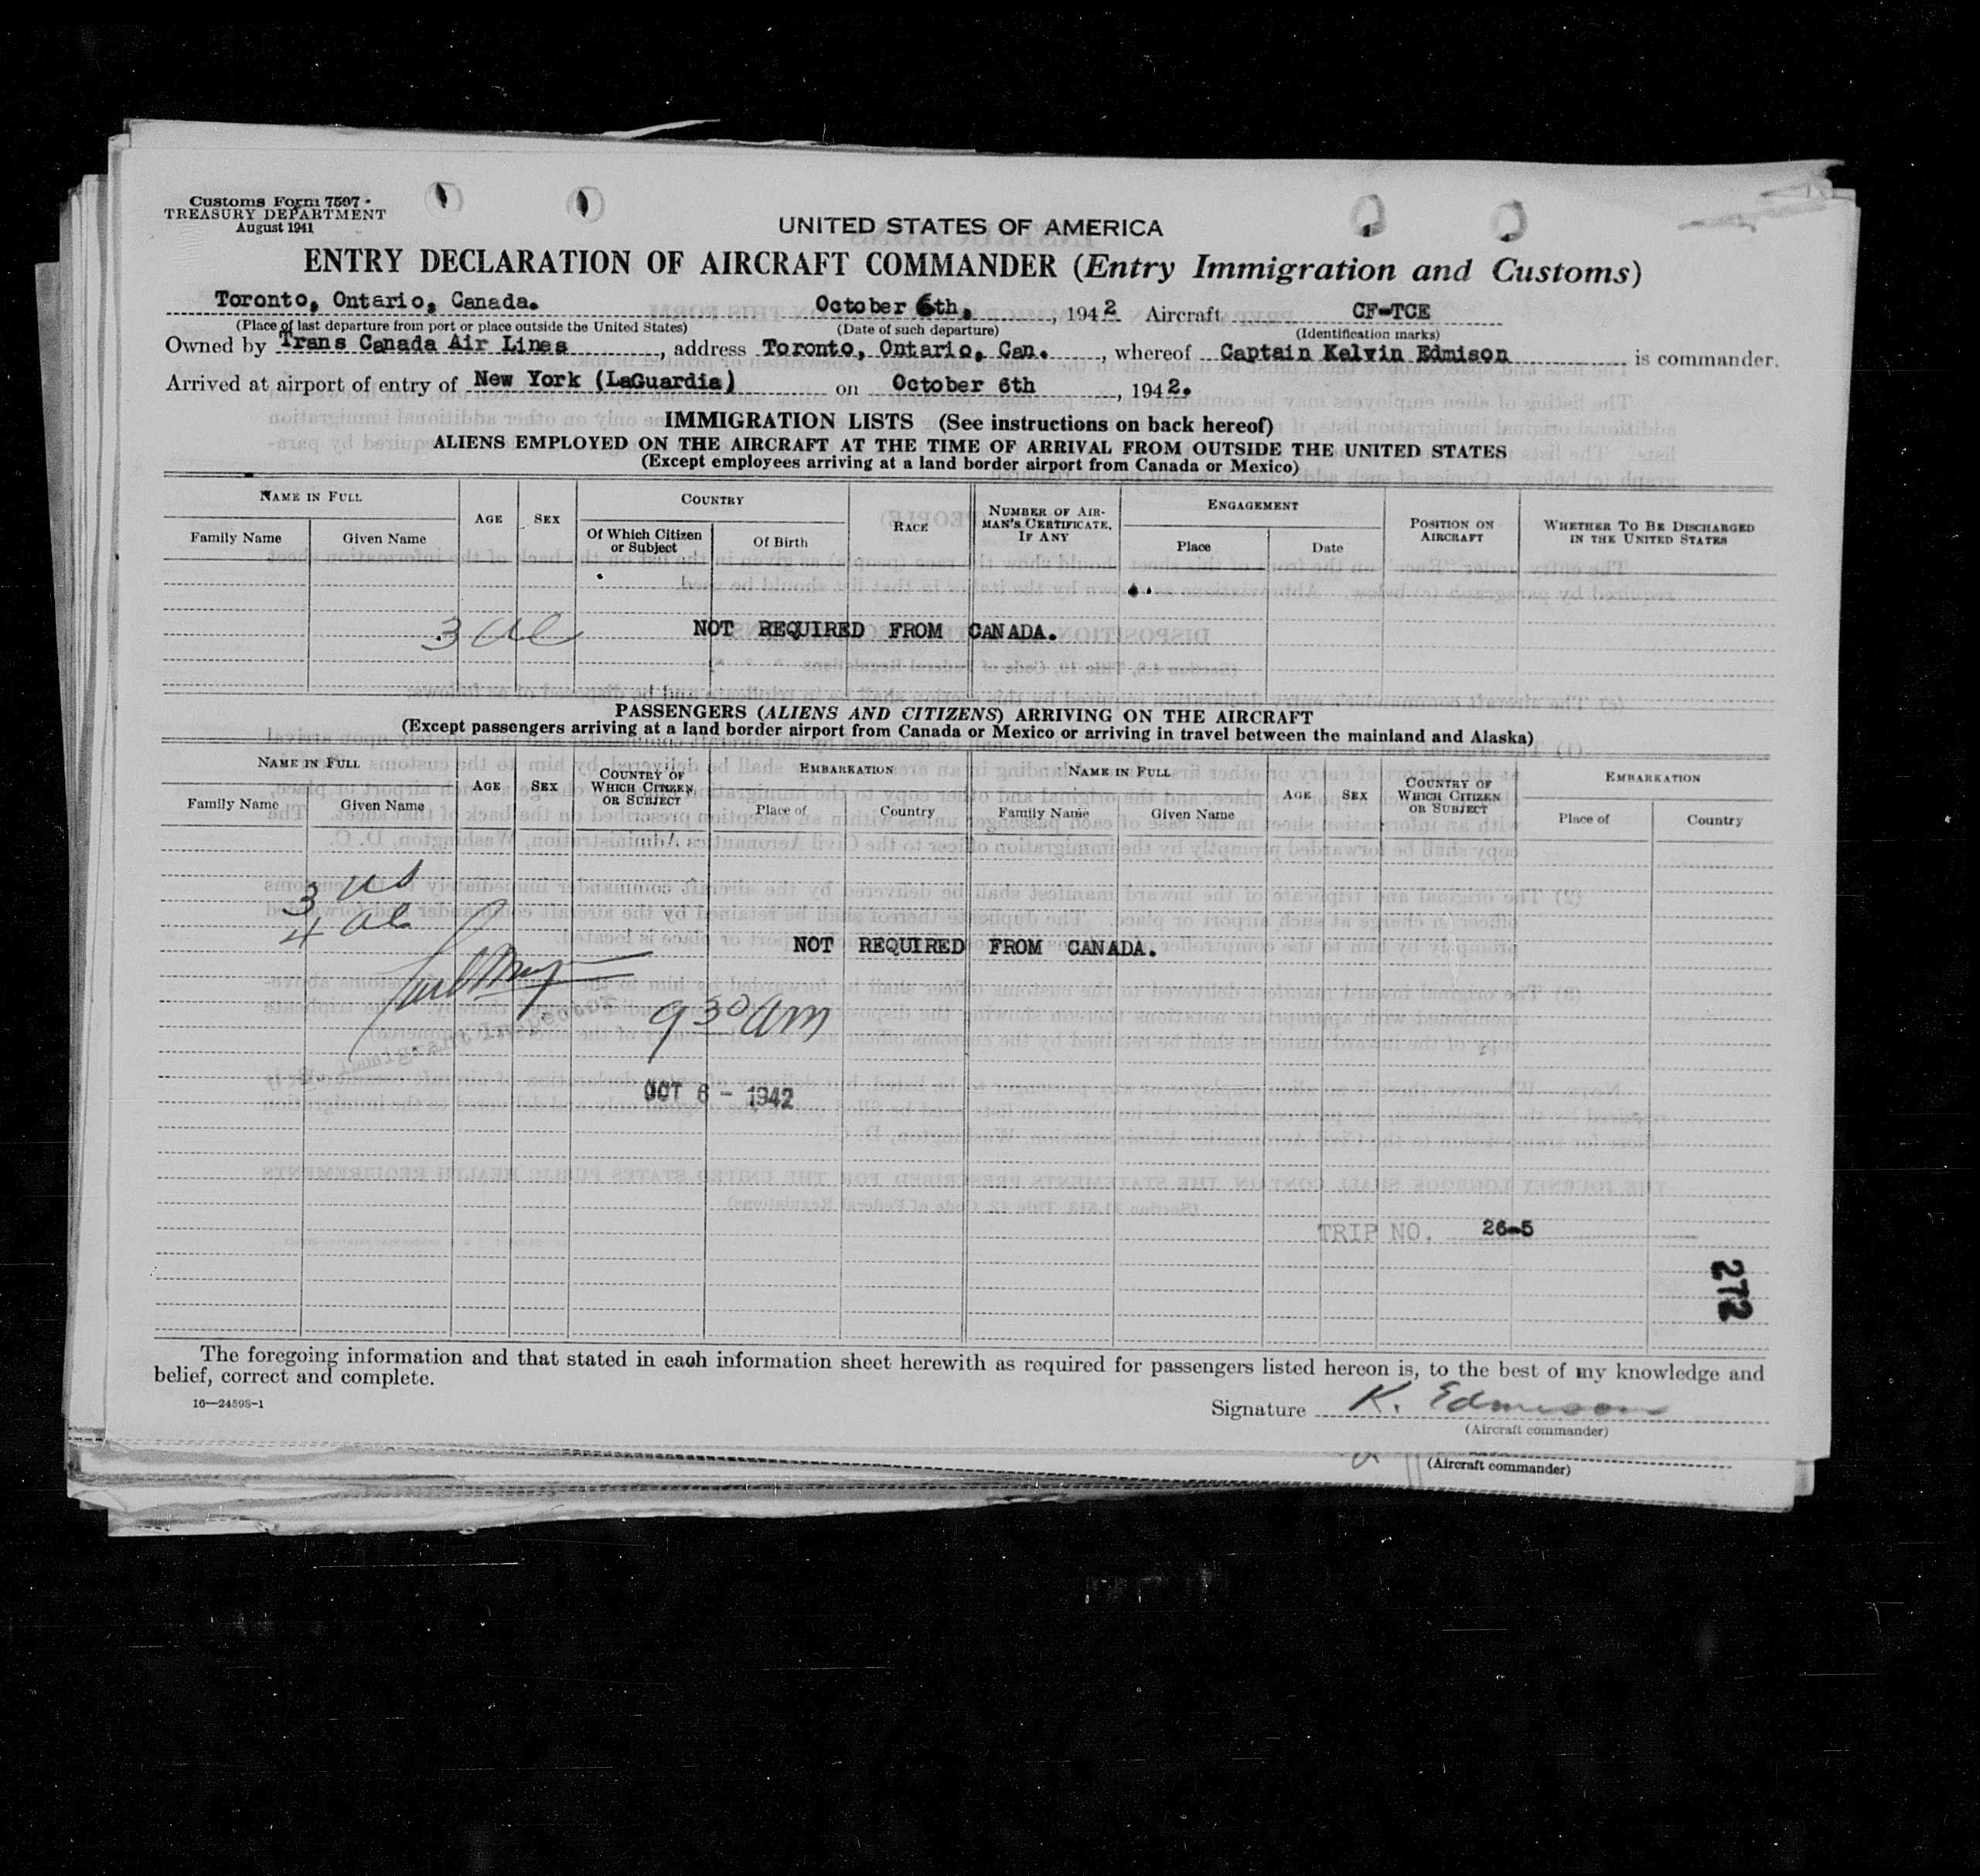 Customs Form 7507
TREASURY DEPARTMENT
August 1941
UNITED STATES OF AMERICA
ENTRY DECLARATION OF AIRCRAFT COMMANDER (Entry Immigration and Customs)
Toronto, Ontario, Canada. October 6th, , 1942 Aircraft CF-TCE
(Place of last departure from port or place outside the United States) (Date of such departure) (Identification marks)
Owned by Trans Canada Air Lines , address Toronto, Ontario, Can. , whereof Captain Kelvin Edmison is commander.
Arrived at airport of entry of New York (LaGuardia) on October 6th , 1942.
IMMIGRATION LISTS (See instructions on back hereof)
ALIENS EMPLOYED ON THE AIRCRAFT AT THE TIME OF ARRIVAL FROM OUTSIDE THE UNITED STATES
(Except employees arriving at a land border airport from Canada or Mexico)
NAME IN FULL AGE SEX COUNTRY RACE NUMBER OF AIRMAN'S CERTIFICATE, IF ANY ENGAGEMENT POSITION ON AIRCRAFT WHETHER TO BE DISCHARGED IN THE UNITED STATES
Family Name Given Name Of Which Citizen or Subject Of Birth Place Date
3 al NOT REQUIRED FROM CANADA.
PASSENGERS (ALIENS AND CITIZENS) ARRIVING ON THE AIRCRAFT
(Except passengers arriving at a land border airport from Canada or Mexico or arriving in travel between the mainland and Alaska)
NAME IN FULL AGE SEX COUNTRY OF WHICH CITIZEN OR SUBJECT EMBARKATION NAME IN FULL AGE SEX COUNTRY OF WHICH CITIZEN OR SUBJECT EMBARKATION
Family Name Given Name Place of Country Family Name Given Name Place of Country
3 us
4 al
NOT REQUIRED FROM CANADA.
9 30 am
OCT 6 - 1942
TRIP NO. 26-5
272
The foregoing information and that stated in each information sheet herewith as required for passengers listed hereon is, to the best of my knowledge and
belief, correct and complete.
16—24598-1
Signature K. Edmison
(Aircraft commander)
(Aircraft commander)